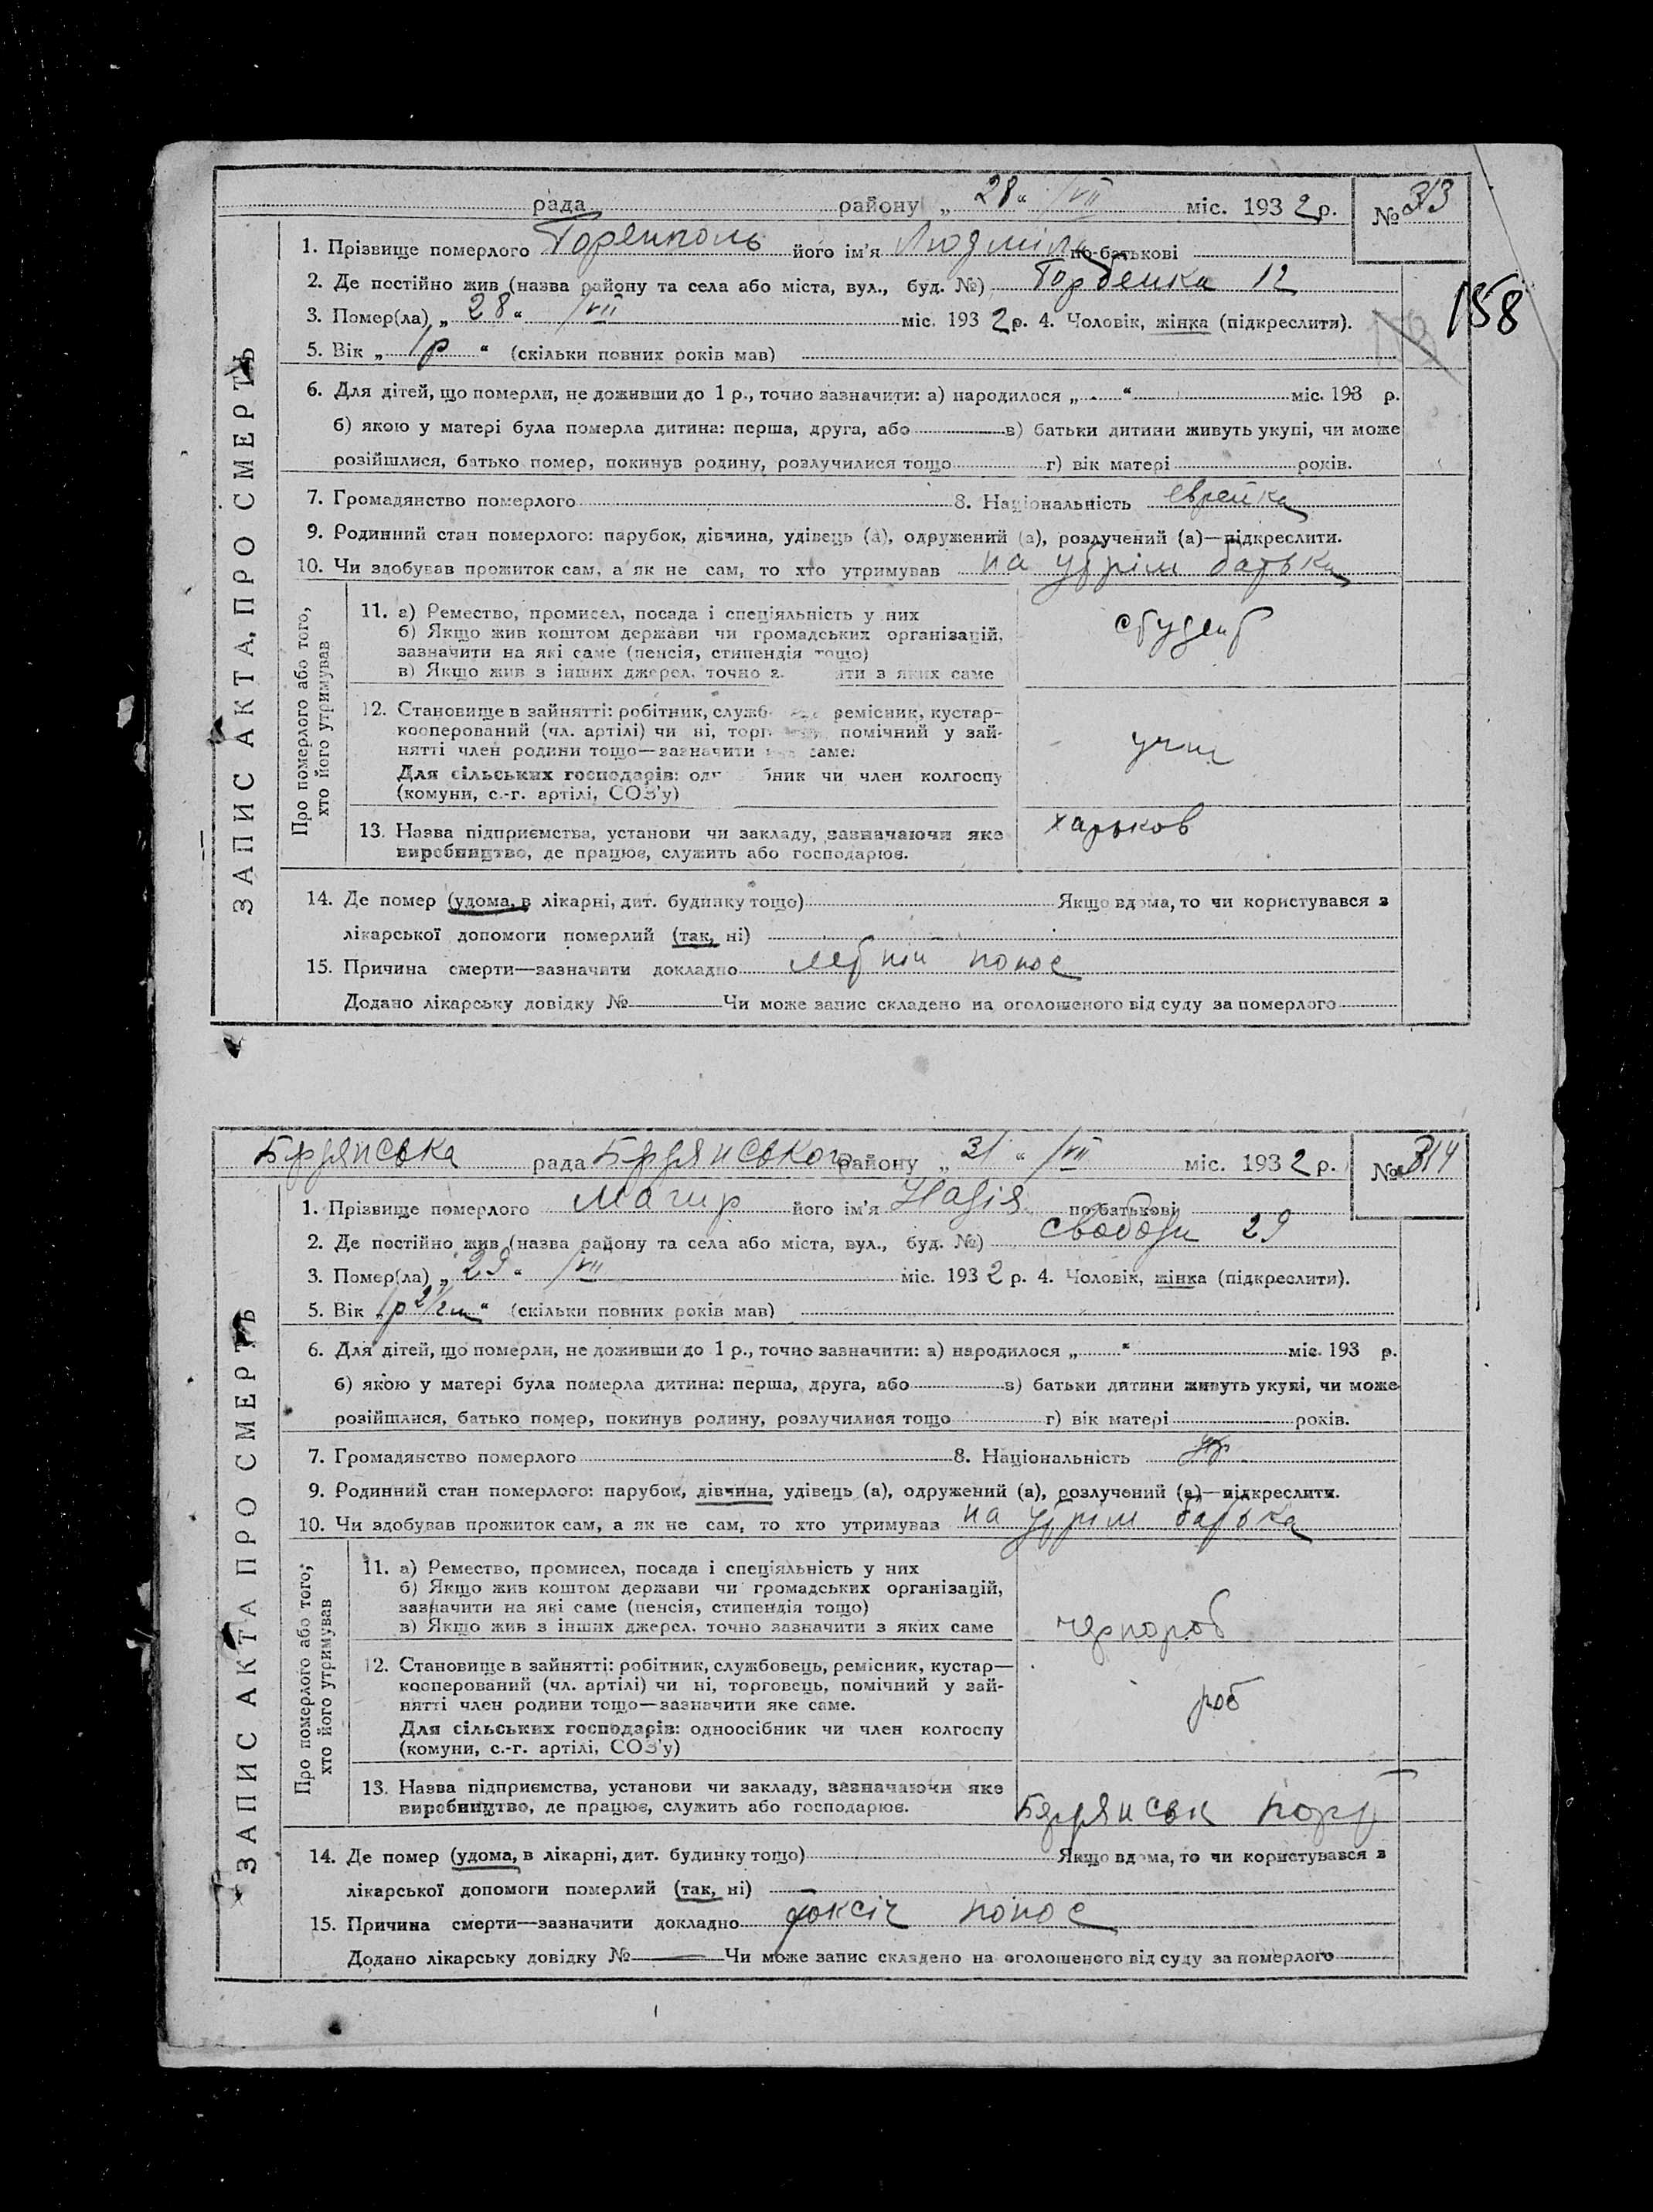 рада району „ 28 “ /VII міс. 1932 р. № 313
1. Прізвище померлого його ім'я Людміла по-батькові
2. Де постійно жив (назва району та села або міста, вул., буд. №) Горбенка 12
158
3. Помер(ла) „ 28 “ /VII міс. 1932 р. 4. Чоловік, жінка (підкреслити).
5. Вік „ 1р “ (скільки повних років мав)
6. Для дітей, що померли, не доживши до 1 р., точно зазначити: а) народилося „ “ міс. 193 р.
б) якою у матері була померла дитина: перша, друга, або в) батьки дитини живуть укупі, чи може
розійшлися, батько помер, покинув родину, розлучилися тощо г) вік матері років.
7. Громадянство померлого 8. Національність еврейка
9. Родинний стан померлого: парубок, дівчина, удівець (а), одружений (а), розлучений (а)—підкреслити.
10. Чи здобував прожиток сам, а як не сам, то хто утримував на утрім батька
ЗАПИС АКТА ПРО СМЕРТЬ
Про померлого або того,
хто його утримував
11. а) Ремество, промисел, посада і спеціяльність у них
б) Якщо жив коштом держави чи громадських організацій,
зазначити на які саме (пенсія, стипендія тощо)
в) Якщо жив з інших джерел, точно з ити з яких саме
студент
12. Становище в зайнятті: робітник, служб ремісник, кустар-
кооперований (чл. артілі) чи ні, торг помічний у зай-
нятті член родини тощо—зазначити саме:
Для сільських господарів: од бник чи член колгоспу
(комуни, с.-г. артілі, СОЗ'у)
учн
13. Назва підприємства, установи чи закладу, зазначаючи яке
виробництво, де працює, служить або господарює.
Харьков
14. Де помер (удома, в лікарні, дит. будинку тощо) Якщо вдома, то чи користувався з
лікарської допомоги померлий (так, ні)
15. Причина смерти—зазначити докладно літній понос
Додано лікарську довідку № Чи може запис складено на оголошеного від суду за померлого
Бердянська рада Бердянського району „ 31 “ /VII міс. 1932 р. № 314
1. Прізвище померлого Магир його ім'я Надія по-батькові
2. Де постійно жив (назва району та села або міста, вул., буд. №) Свободи 29
3. Помер(ла) „ 29 “ /VII міс. 1932 р. 4. Чоловік, жінка (підкреслити).
5. Вік „ 1р 2 1/2 м “ (скільки повних років мав)
6. Для дітей, що померли, не доживши до 1 р., точно зазначити: а) народилося „ “ міс. 193 р.
б) якою у матері була померла дитина: перша, друга, або в) батьки дитини живуть укупі, чи може
розійшлися, батько помер, покинув родину, розлучилися тощо г) вік матері років.
7. Громадянство померлого 8. Національність укр
9. Родинний стан померлого: парубок, дівчина, удівець (а), одружений (а), розлучений (а)—підкреслити.
10. Чи здобував прожиток сам, а як не сам, то хто утримував на утрім батька
ЗАПИС АКТА ПРО СМЕРТЬ
Про померлого або того,
хто його утримував
11. а) Ремество, промисел, посада і спеціяльність у них
б) Якщо жив коштом держави чи громадських організацій,
зазначити на які саме (пенсія, стипендія тощо)
в) Якщо жив з інших джерел, точно зазначити з яких саме
чорнороб
12. Становище в зайнятті: робітник, службовець, ремісник, кустар—
кооперований (чл. артілі) чи ні, торговець, помічний у зай-
нятті член родини тощо—зазначити яке саме.
Для сільських господарів: одноосібник чи член колгоспу
(комуни, с.-г. артілі, СОЗ'у)
роб
13. Назва підприємства, установи чи закладу, зазначаючи яке
виробництво, де працює, служить або господарює.
Бердянськ порт
14. Де помер (удома, в лікарні, дит. будинку тощо) Якщо вдома, то чи користувався з
лікарської допомоги померлий (так, ні)
15. Причина смерти—зазначити докладно токсіч понос
Додано лікарську довідку № Чи може запис складено на оголошеного від суду за померлого